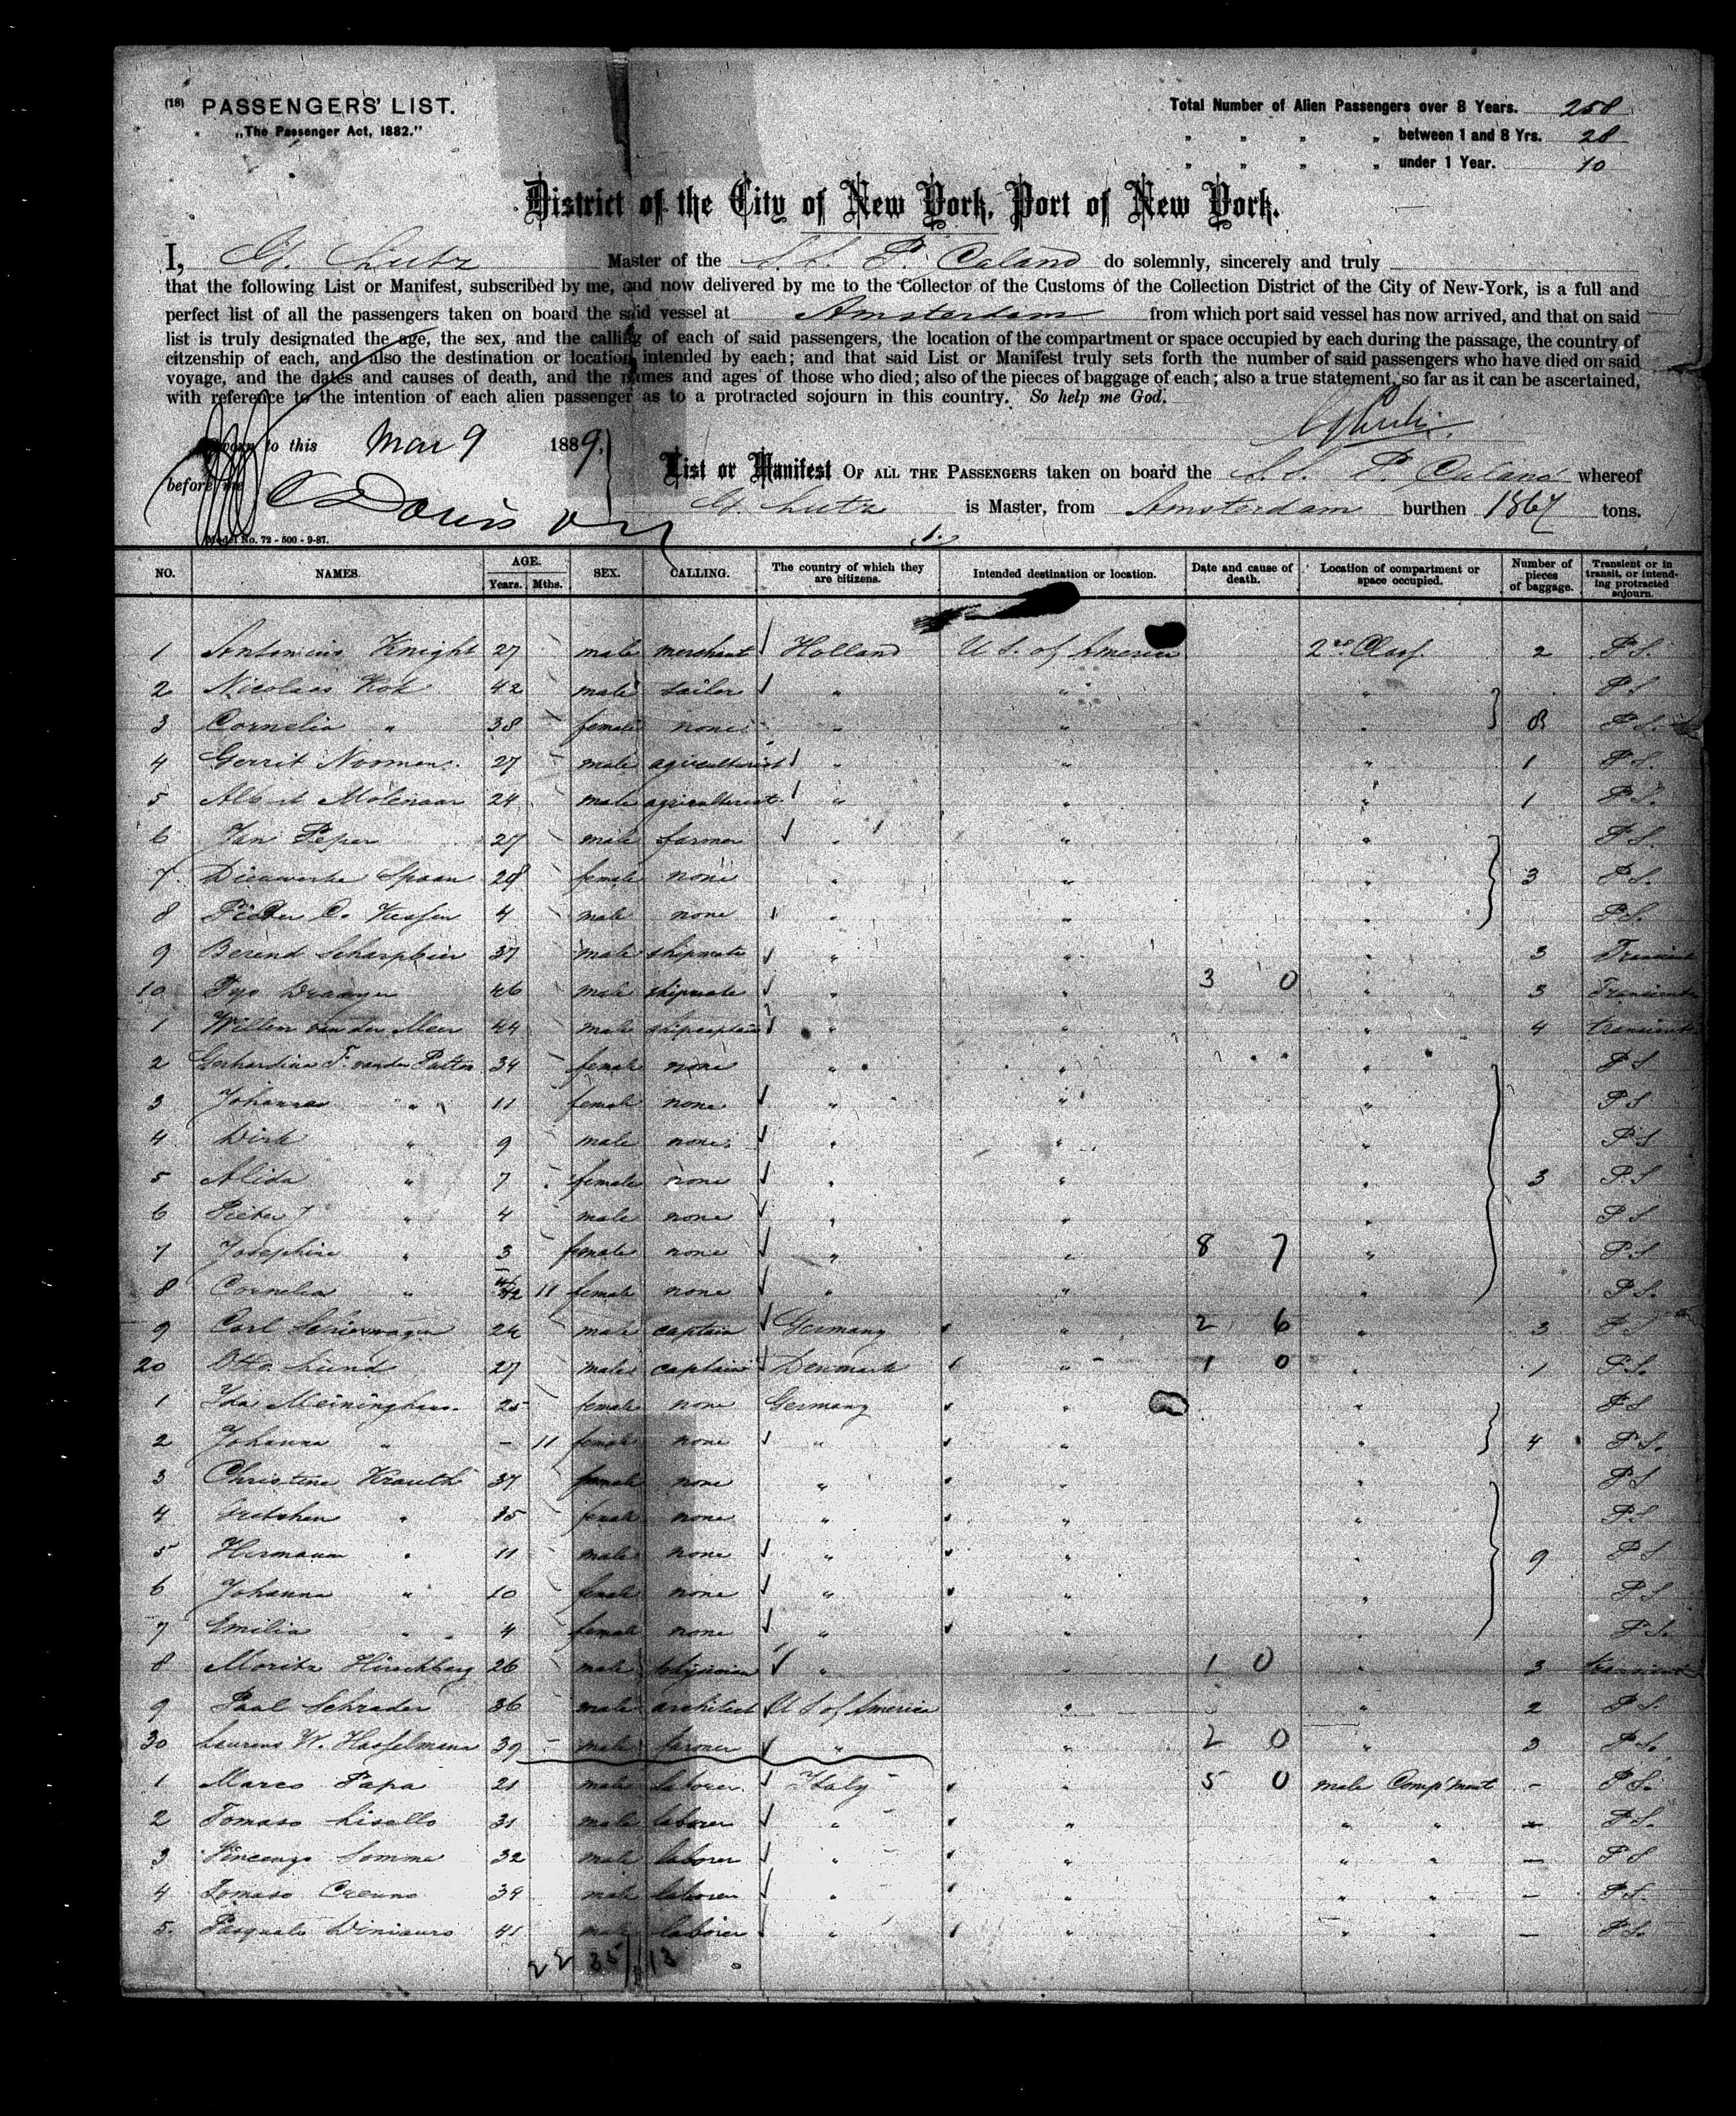 (18) PASSENGERS' LIST.
„The Passenger Act, 1882."
Total Number of Alien Passengers over 8 Years. 258
„ „ „ „ between 1 and 8 Yrs. 28
„ „ „ „ under 1 Year. 10
District of the City of New York, Port of New York.
I, G. Lutz Master of the S.S. P. Caland do solemnly, sincerely and truly
that the following List or Manifest, subscribed by me, and now delivered by me to the Collector of the Customs of the Collection District of the City of New-York, is a full and
perfect list of all the passengers taken on board the said vessel at Amsterdam from which port said vessel has now arrived, and that on said
list is truly designated the age, the sex, and the calling of each of said passengers, the location of the compartment or space occupied by each during the passage, the country of
citzenship of each, and also the destination or location intended by each; and that said List or Manifest truly sets forth the number of said passengers who have died on said
voyage, and the dates and causes of death, and the names and ages of those who died; also of the pieces of baggage of each; also a true statement, so far as it can be ascertained,
with reference to the intention of each alien passenger as to a protracted sojourn in this country. So help me God.
Sworn to this Mar 9 1889.
before me
List or Manifest OF ALL THE PASSENGERS taken on board the S.S. P. Caland whereof
G. Lutz is Master, from Amsterdam burthen 1867 tons.
Model No. 72 - 500 - 9-87.
1.
NO. NAMES. AGE. Years. Mths. SEX. CALLING. The country of which they are citizens. Intended destination or location. Date and cause of death. Location of compartment or space occupied. Number of pieces of baggage. Transient or in transit, or intending protracted sojourn.
1 Antonius Knight 27 male merchant Holland U S. of America 2nd Class. 2 P S.
2 Nicolaas Kok 42 male sailor „ „ „ P S
3 Cornelia „ 38 female none „ „ „ 8 P S.
4 Gerrit Nooman 27 male agriculturist „ „ „ 1 P S.
5 Albert Molenaar 24 male agriculturist „ „ „ 1 P S.
6 Jan Peper 27 male farmer „ „ „ P S.
7 Dieuwerke Spaan 28 female none „ „ „ 3 P S.
8 Pieter C. 4 male none „ „ „ P S.
9 Berend 37 male shipmate „ „ „ 3 Transient
10 Draayer 46 male shipmate „ „ 3 0 „ 3 Transient
1 Willem van der Meer 44 male shipcaptain „ „ „ 4 transient
2 Gerhardina F. van der Patten 34 female none „ „ „ P S
3 Johanna „ 11 female none „ „ „ P S
4 Dirk „ 9 male none „ „ „ P S
5 Alida „ 7 female none „ „ „ 3 P S
6 Pieter J „ 4 male none „ „ „ P S
7 Josephine „ 3 female none „ „ 8 7 „ P S
8 Cornelia „ 11 female none „ „ „ P S.
9 Carl 24 male captain Germany „ 2 6 „ 3 P S
20 Otto Lund 27 male captain Denmark „ 1 0 „ 1 P S.
1 Ida Meininghaus. 25 female none Germany „ „ P S
2 Johanna „ - 11 female none „ „ „ 4 P S.
3 Christine Krauth 37 female none „ „ P S
4 Gretchen „ 35 female none „ „ „ P S
5 Hermann „ 11 male none „ „ „ 9 P S
6 Johanna „ 10 female none „ „ „ P S
7 Emilia „ 4 female none „ „ „ P S.
8 Moritz Hirschberg 26 male physician „ „ 1 0 „ 3 transient
9 Paul Schrader 36 male architect U S of America „ „ 2 P S.
30 Laurens W. Hasselmann 39 male farmer „ „ 2 0 „ 3 P S.
1 Marco Papa 21 male laborer Italy „ 5 0 male Comp'ment - P S.
2 Tomaso Lisello 31 male laborer „ „ „ „ - P S.
3 Vincenzo Somma 32 male laborer „ „ „ „ - P S
4 Tomaso 39 male laborer „ „ „ „ - P S.
5. Pasquale 41 male laborer „ „ „ „ - P S.
22 35 13